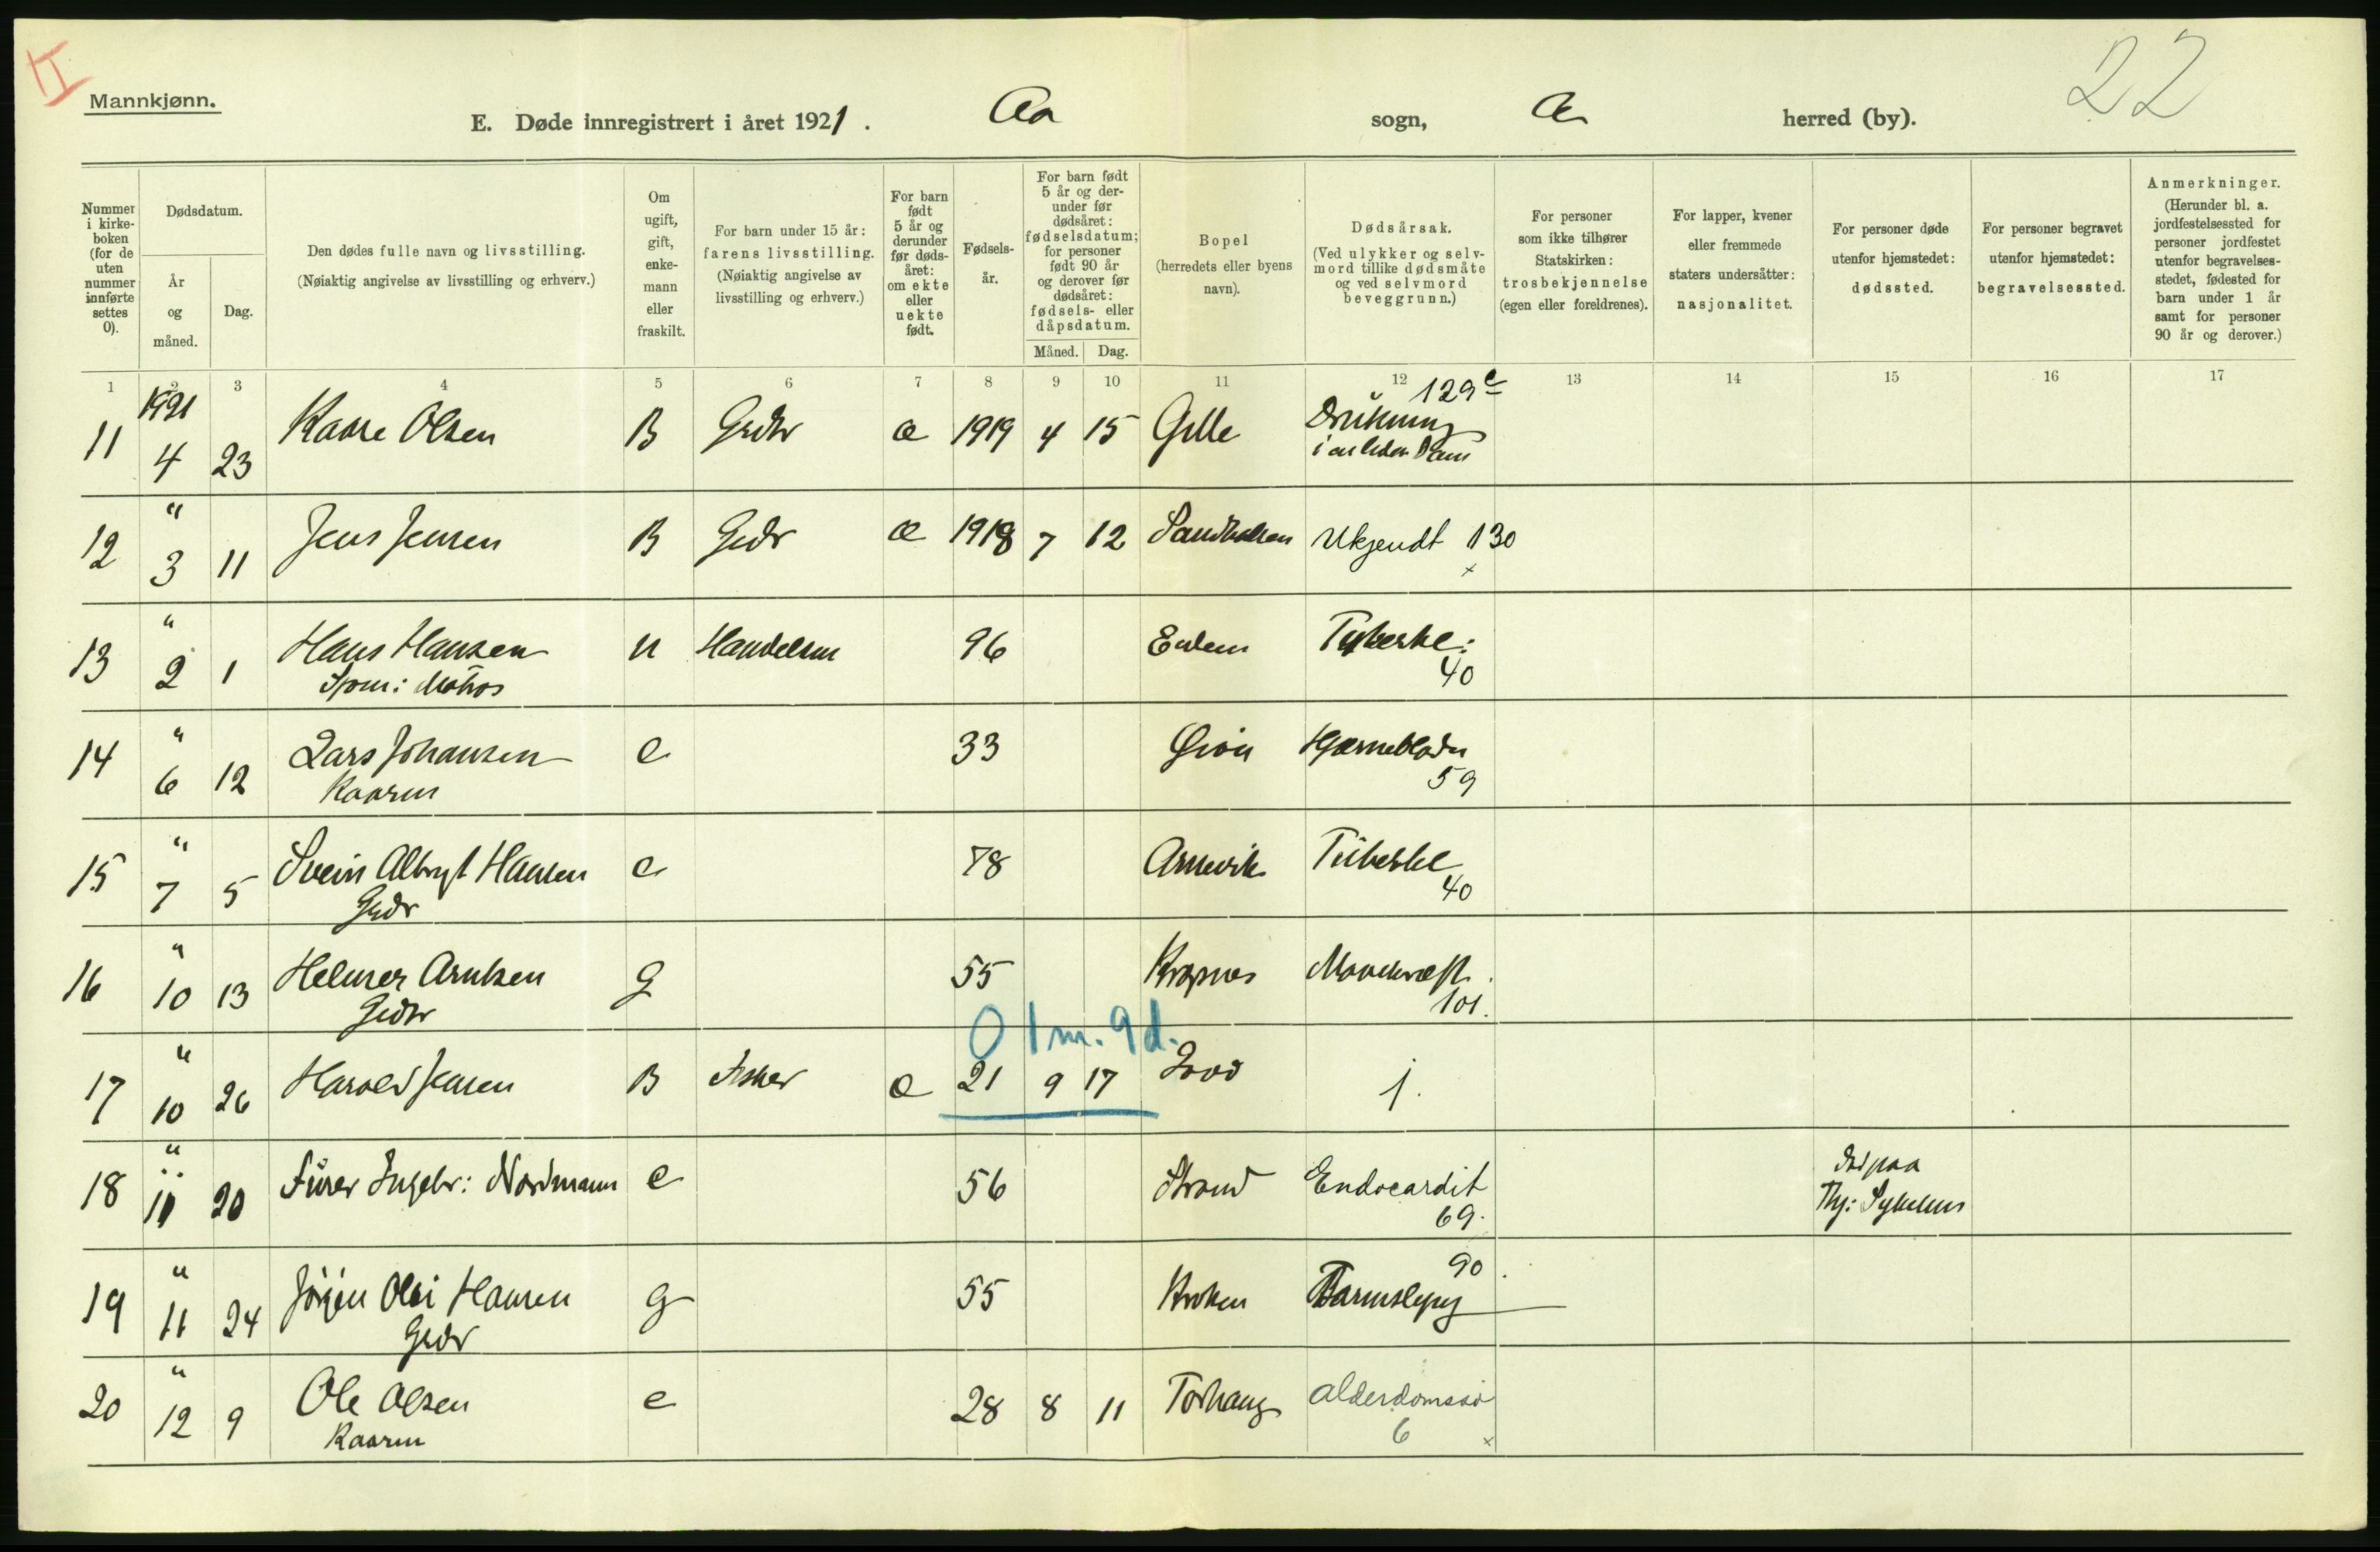 II
Mannkjønn.
E. Døde innregistrert i året 1921. Aa sogn, herred (by).
22
Nummer i kirke-boken (for de uten nummer innførte settes 0).
Dødsdatum.
År og måned.
Dag.
Den dødes fulle navn og livsstilling.
(Nøiaktig angivelse av livsstilling og erhverv.)
Om ugift, gift, enke-mann eller fraskilt.
For barn under 15 år: farens livsstilling.
(Nøiaktig angivelse av livsstilling og erhverv.)
For barn født 5 år og derunder før døds-året: om ekte eller uekte født.
Fødsels-år.
For barn født 5 år og der-under før dødsåret: fødselsdatum; for personer født 90 år og derover før dødsåret: fødsels- eller dåpsdatum.
Måned. Dag.
Bopel
(herredets eller byens navn).
Dødsårsak.
(Ved ulykker og selv-mord tillike dødsmåte og ved selvmord beveggrunn.)
For personer som ikke tilhører Statskirken: trosbekjennelse
(egen eller foreldrenes).
For lapper, kvener eller fremmede staters undersåtter: nasjonalitet.
For personer døde utenfor hjemstedet: dødssted.
For personer begravet utenfor hjemstedet: begravelsessted.
Anmerkninger.
(Herunder bl. a. jordfestelsessted for personer jordfestet utenfor begravelses-stedet, fødested for barn under 1 år samt for personer 90 år og derover.)
1 2 3 4 5 6 7 8 9 10 11 12 13 14 15 16 17
11 1921 4 23 Kaare Olsen B Grdbr æ 1919 4 15 Gille 129 e Drukning
12 " 3 11 Jens Jensen B Grdr æ 1918 7 12 Ukjendt 130
13 " 2 1 Hans Hansen u Handelsm 96 Tuberkl: 40
14 " 6 12 Lars Johansen e 33 Hjerneblødn 59
Kaarm
15 " 7 5 Svein Albrigt Hansen e 78 Arnevik Tuberkl 40
Grdr
16 " 10 13 Helmer Arntsen g 55 Mavekræft 101.
Grdbr
0 1 m. 9 d.
17 " 10 26 Harald Jensen B Fisker æ 21 9 17 1.
18 " 11 20 Ingebr: Nordmann e 56 Strand Endocardit 69. Død paa
Sykehus
19 " 11 24 Jörgen Olai Hansen g 55 Kroken Tarmslyng 90
Grdr
20 " 12 9 Ole Olsen e 28 8 11 Torhaug Alderdomssv 6
Kaarm